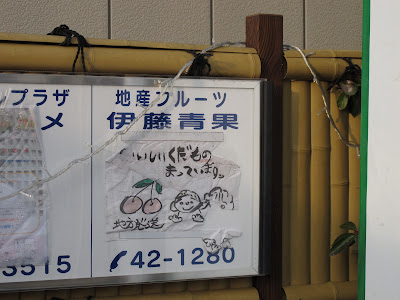 プラザ
メ
3515
地産フルーツ
伊藤青果
おいしいくだもの
まっています。
地方発送
42-1280